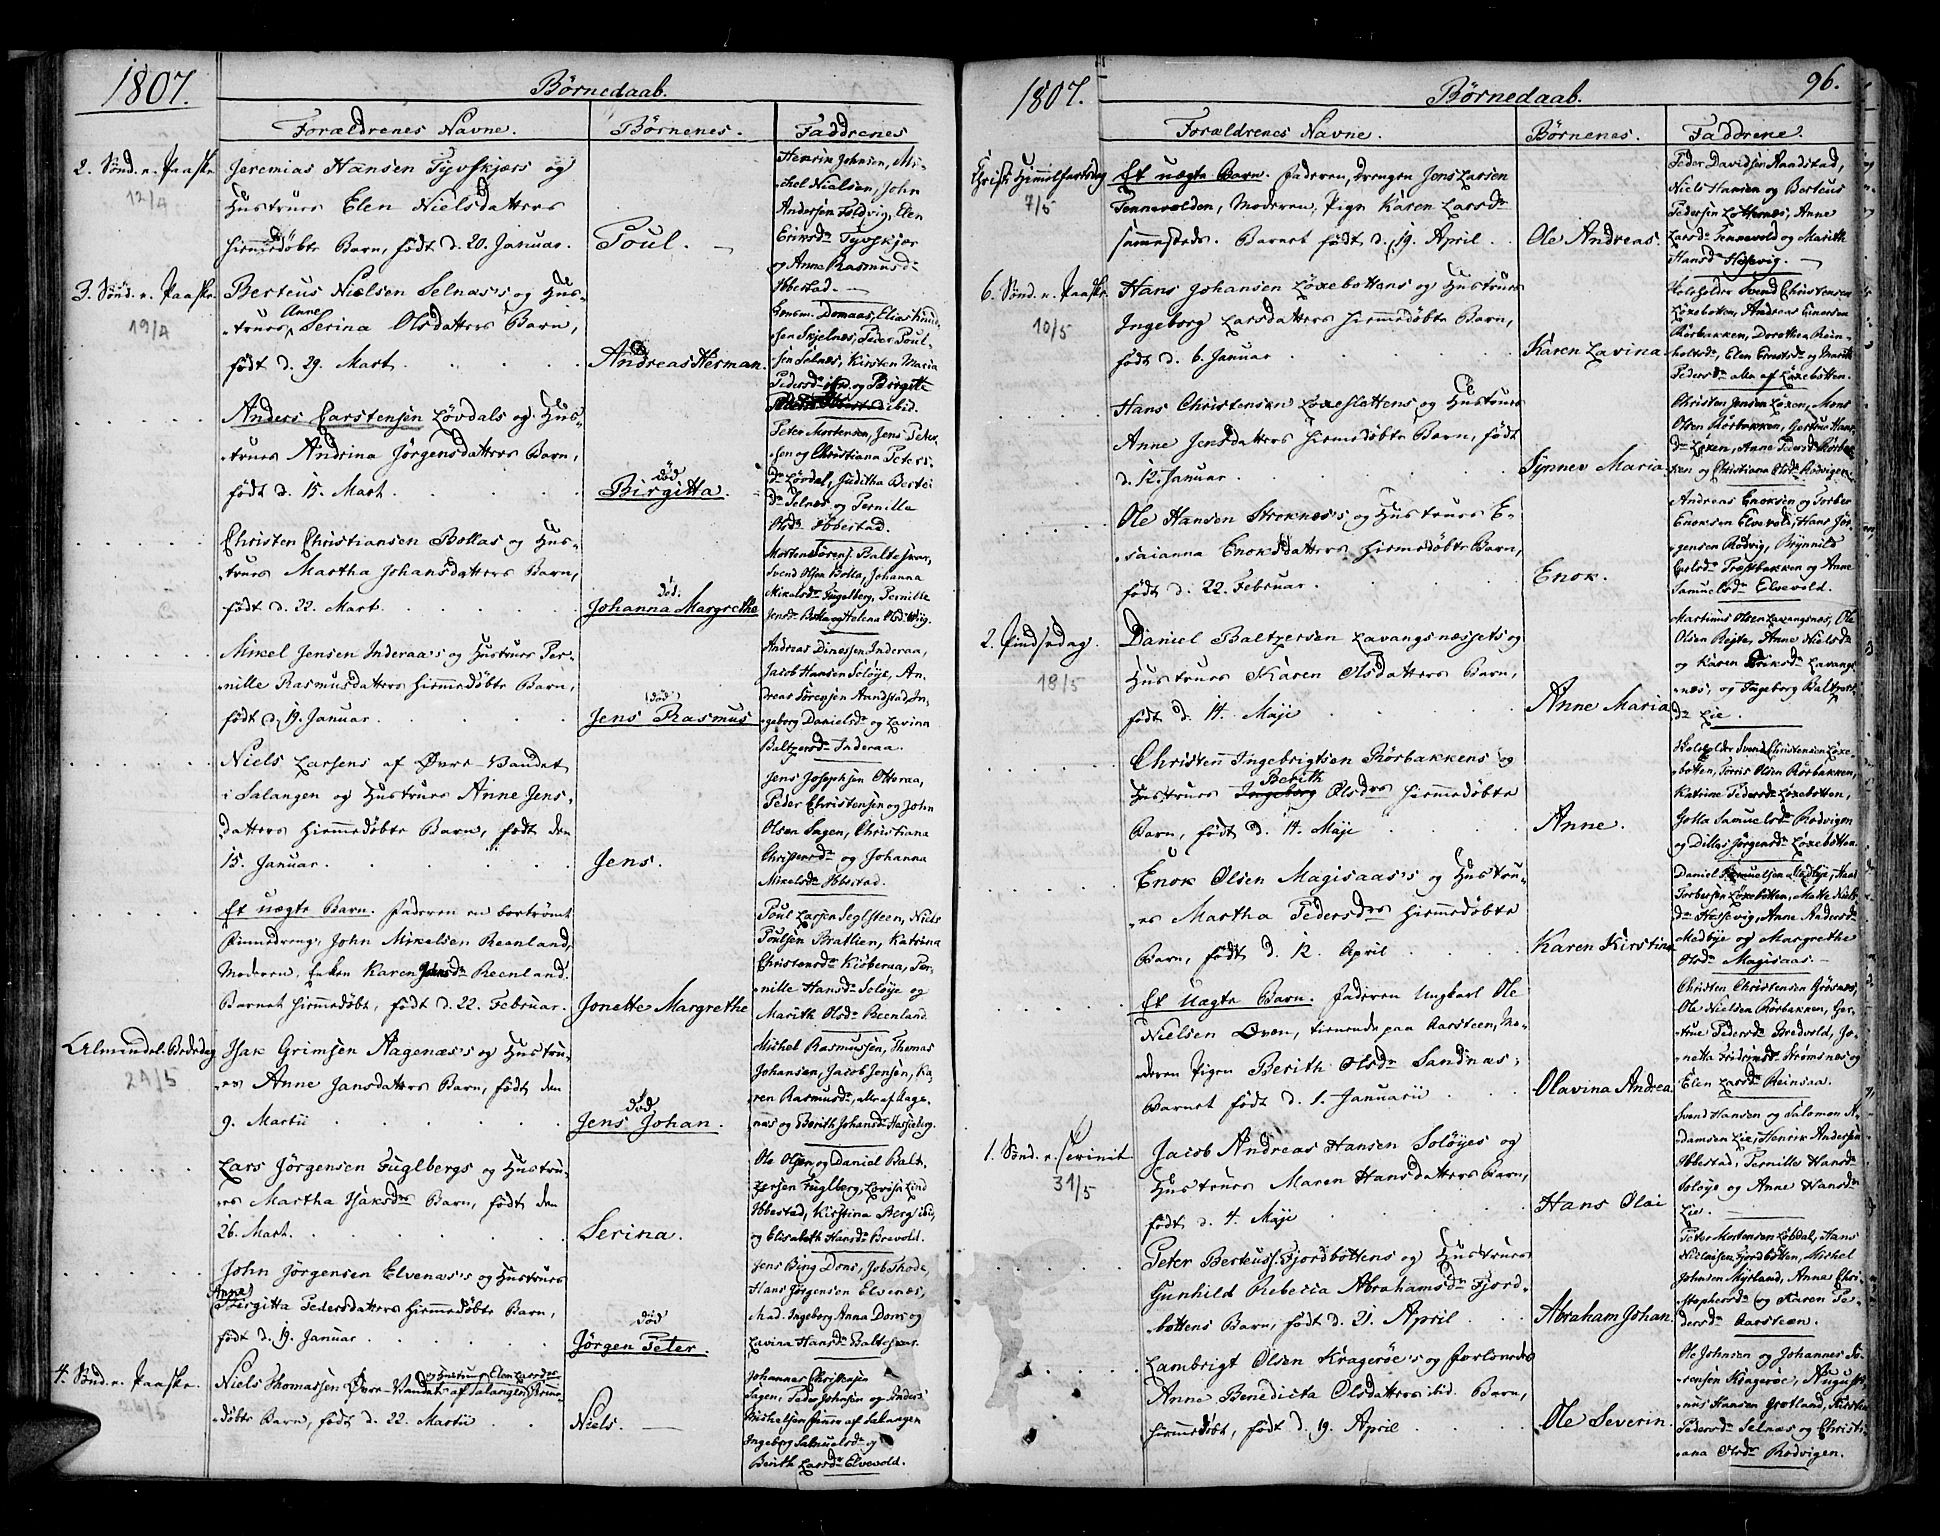 1807.
Børnedaab.
Forældrenes Navne.
Børnenes.
Faddrenes
2. Sønd. n. Paaske
12/4
Jeremias Hansen Tyvskjærs og
Hustrues Elen Nielsdatters
hiemmedøbte Barn, født d. 20. Januar.
Poul.
Henrik Johnsen, Mi-
chel Nielsen, John
Andersen Foldvig, Elen
Eriksdr Tyvskjær
og Anne Rasmusdr
Ibbestad.
3. Sønd. n. Paaske
19/4
Berteus Nielsen Selnæs's og Hus-
trues Anne Serina Olsdatters Barn,
født d. 29. Mart.
Andreas Herman.
Domaas, Elias Knud-
sen Skjelnæs, Peder Poul-
sen Selnæs, Kirsten Maria
Pedersdr ibid. og Birgitte
ibid.
Anders Carstensen Løvdals og Hus-
trues Andrina Jørgensdatters Barn,
født d. 15. Mart.
død
Birgitta.
Peter Mortensen, Jens Peter-
sen og Christiana Peters-
dr Løvdal, Juditha Bertei
dr Selnæs og Pernille
Olsdr Ibbestad.
Christen Christiansen Bollas og Hus-
trues Martha Johansdatters Barn,
født d. 22. Mart.
død.
Johanna Margrethe
Morten Sørens. Balteskar,
Svend Olsen Bolla, Johanna
Mikalsdr Fuglberg, Pernille
Jensdr Bolla og Helena Olsdr Wiig.
Mikel Jensen Inderaa's og Hustrues Per-
nille Rasmusdatters hiemmedøbte Barn,
født d. 19. Januar.
død
Jens Rasmus
Andreas Dinessen Inderaa,
Jacob Hansen Soløye, An-
dreas Sørensen Aandstad, In-
geborg Danielsdr og Lavina
Baltzersdr Inderaa.
Niels Larsens af Øvre-Vandet
i Salangen og Hustrues Anne Jens-
datters hiemmedøbte Barn, født den
15. Januar.
Jens.
Jens Josephsen Otteraa,
Peder Christensen og John
Olsen Sagen, Christiana
Christensdr og Johanna
Mikelsdr Ibbestad.
Et uægte Barn. Faderen en bortrømt
Finnedreng, John Mikelsen Reenland,
Moderen, Enken Karen Jensdr Reenland.
Barnet hiemmedøbt, født d. 22. Februar.
Jonette Margrethe
Poul Larsen Seglsteen, Niels
Poulsen Bratlien, Katrina
Christensdr Kioberaa, Per-
nille Hansdr Soløye og
Marith Olsdr Reenland.
Almindel. Bededag
24/5
Isak Grimsen Aagenæs's og Hustru-
es Anne Jansdatters Barn, født den
9. Martii
død
Jens Johan.
Michel Rasmussen, Thomas
Johansen, Jacob Jensen, Ka-
ren Rasmusdr, alle af Aage-
næs og Berith Johansdr Hasfieberg.
Lars Jörgensen Fuglbergs og Hustru-
es Martha Isaksdrs Barn, født den
26. Mart.
Serina.
Ole Olsen og Daniel Balt-
zersen Fuglberg, Lovise Lind
Ibbestad, Kirstina Berg ibid.
og Elisabeth Hansdr Brevold.
John Jörgensen Elvenæs's og Hustrues
Anne
Birgitta Pedersdatters hiemmedøbte Barn,
født d. 19. Januar
død
Jörgen Peter.
Jens Bing Dons, Job Thode,
Hans Jörgensen Elvenæs,
Mad. Ingeborg Anna Dons og
Lavina Hansdr Balteskar.
4. Sønd. n. Paaske.
26/5
og Hustrues Elen Larsdrs
Niels Thomassen Øvre-Vandets af Salangen hiemme-
døbte Barn, født d. 22. Martii
Niels.
Johannes Christensen
Sagen, Peder Johnsen og Anders
Michelsen af Salangen
Ingeborg Salmuelsdr og
Berith Larsdr Elvevold.
1807.
Børnedaab.
96.
Forældrenes Navne.
Børnenes.
Faddrene.
Christi Himmelfartsdag
7/5
Et uægte Barn. Faderen, Drengen Jens Larsen
Tennevolden, Moderen, Pign Karen Larsdr
sammesteds. Barnet født d. 19. April
Ole Andreas.
Peder Davidsen Aandstad,
Niels Hansen og Berteus
Pedersen Lotternæs, Anne
Larsdr Tennevold og Marith
Hansdr Hessevig.
6. Sønd. n. Paaske
10/5
Hans Johansen Löxebottens og Hustrues
Ingeborg Larsdatters hiemmedøbte Barn,
født d. 6. Januar
Karen Lavina
Svend Christensen
Löxebotten, Andreas Einersen
Rörbakken, Dorothea Rein-
holtsdr, Elen Erntsdr og Marit
Pedersdr alle af Löxebotten.
Hans Christensen Löxeslettens og Hustrues
Anne Jensdatters hiemmedøbte Barn, født
d. 12. Januar
Synnev Maria
Christen Jensen Löxen, Mons
Olsen Rörbakken, Gertrue Hans-
dr Löxen, Anne Pedersdr Rörbak-
ken og Christiana Olsdr Rodvigen.
Ole Hansen Stroknæs's og Hustrues E-
saianna Enoksdatters hiemmedøbte Barn,
født d. 22. Februar.
Enok.
Andreas Enoksen og Torber
Enoksen Elvevold, Hans Jör-
gensen Rodvig, Brynnild
Carlsdr Trøstbakken og Anne
Samuelsdr Elvevold.
2. Pindsedag.
18/5
Daniel Baltzersen Lavangsnæssets og
Hustrues Karen Olsdatters Barn,
født d. 14. Maji
Anne Maria
Martinus Olsen Lavangsnæs, Ole
Olsen Rejte, Anne Nielsdr
og Karen Eriksdr Lavangs-
næs, og Ingeborg Baltzers-
dr Lie.
Christen Ingebrigtsen Rörbakkens og
Berith
Hustrues Ingeborg Olsdrs hiemmedøbte
Barn, født d. 14. Maji
Anne.
Svend Christensen Löxe-
botten, Torris Olsen Rörbakken,
Katrine Pedersdr Löxebotten,
Golla Samuelsdr Rodvigen
og Dilla Jörgensdr Löxebotten.
Enok Olsen Magisaas's og Hustru-
es Martha Pedersdrs hiemmedøbte
Barn, født d. 12. April
Karen Kirstina
Daniel Samuelsen Medbye, Hans
Torbersen Löxebotten, Mette Niels-
dr Hessevig, Anne Andersdr
Medbye og Margrethe
Olsdr Magisaas.
Et Uægte Barn. Faderen Ungkarl Ole
Nielsen Øven, tienende paa Aarsteen, Mo-
deren Pigen Berith Olsdr Sandnæs;
Barnet født d. 1. Januarii
Olavina Andrea
Christen Christensen Grösnæs,
Ole Nielsen Rörbakken, Ger-
true Pedersdr Bredvold, Jo-
netta Fridrinsdr Strömsnæs og
Elen Larsdr Reinsaa.
1. Sønd. n. Trinit
31/5
Jacob Andreas Hansen Soløyes og
Hustrues Maren Hansdatters Barn,
født d. 4. Maji
Hans Olai
Svend Hansen og Salomon A-
damsen Lie, Henrik Andersen
Ibbestad, Pernille Hansdr
Soløye og Anne Hansdr
Lie.
Peter Berteuss. Fjordbottens og Hustrues
Gunhild Rebecca Abrahamsdr Fjord-
bottens Barn, født d. 21. April
Abraham Johan.
Peter Mortensen Löbdal, Hans
Nicolaisen Fjordbotten, Michel
Johnsen Myrland, Anna Chri-
stophersdr og Karen Pe-
dersdr Aarsteen.
Lambrigt Olsen Kragerøe's og Forlovedes
Anne Benedicta Olsdatters ibid. Barn,
hiemmedøbt, født d. 19. April
Ole Severin.
Ole Johnsen og Johannes Sö-
rensen Kragerøe, August-
nus Hansen Grotland, Kirsten
Pedersdr Selnæs og Christi-
ana Olsdr Rodvigen.